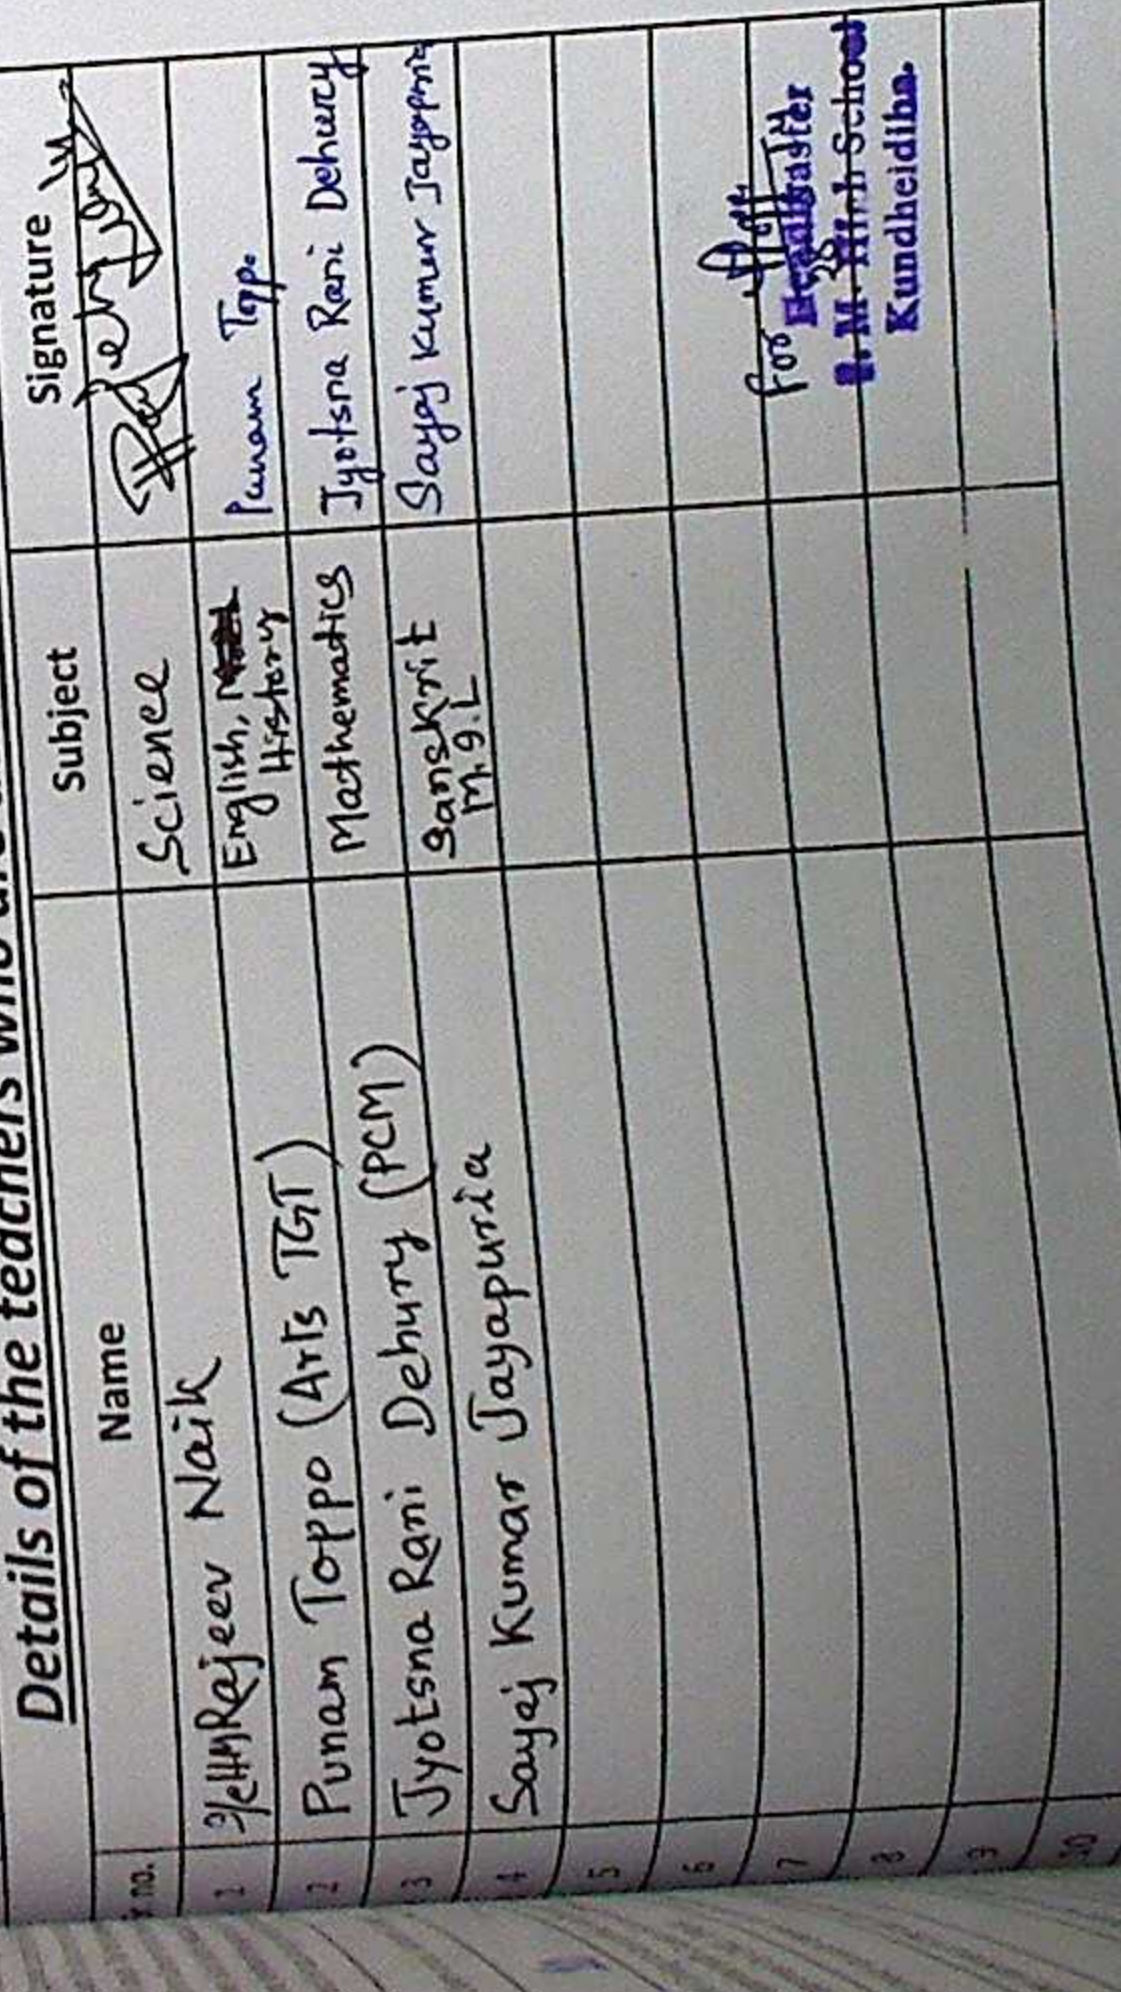 Details of the teachers who
no. Name Subject Signature
1 Rajeev Naik Science
2 Punam Toppo (Arts TGT) English, History Punam Topp.
3 Jyotsna Rani Dehury (PCM) Mathematics Jyotsna Rani Dehury
4 Sayaj Kumar Jayapuria Sanskrit M.g.L Sayaj Kumar Jayapuria
5
6
7 For
8 Headmaster
9 High School
10 Kundheidiha.